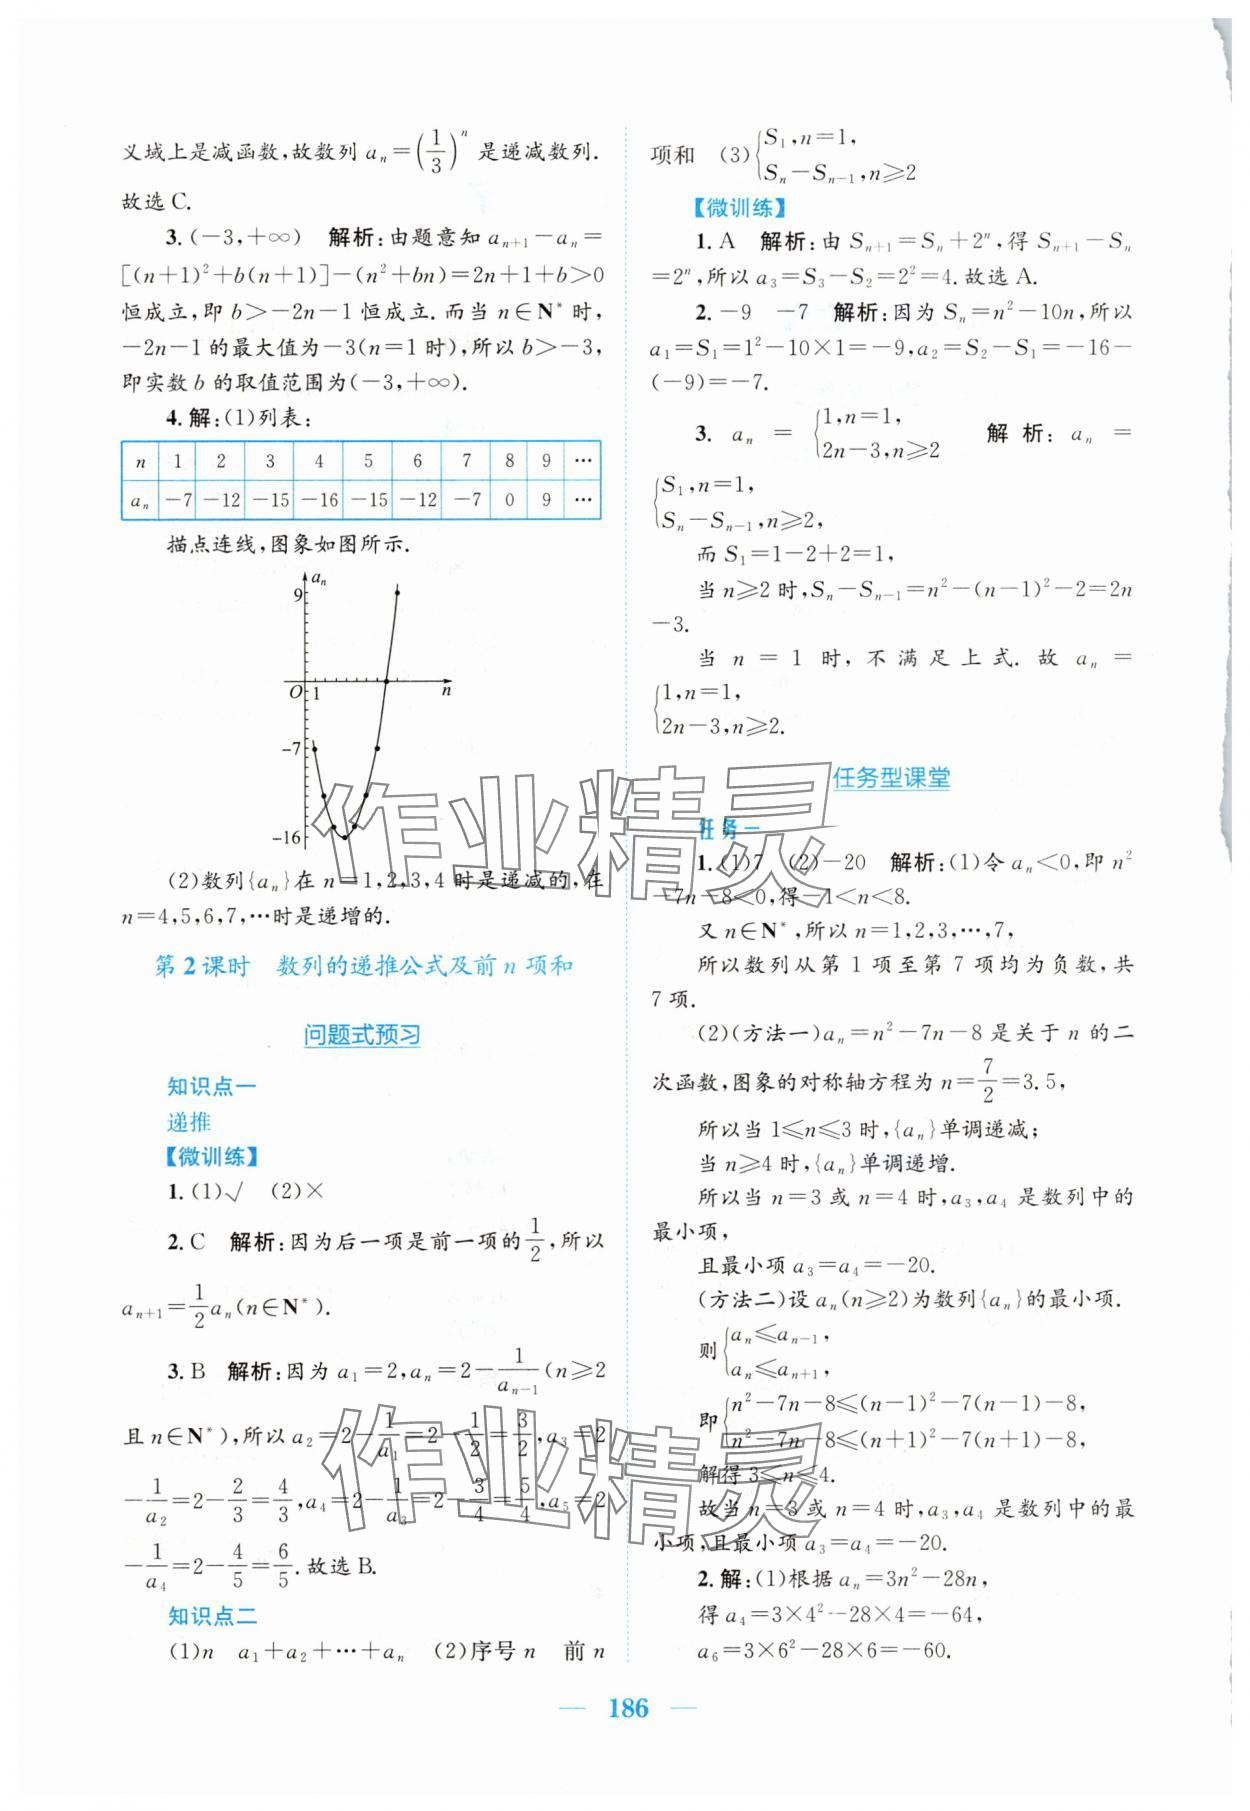 义域上是减函数,故数列 aₙ=(1/3)ⁿ 是递减数列.
故选 C.
3. (-3,+∞) 解析:由题意知 aₙ₊₁-aₙ=
[(n+1)²+b(n+1)]-(n²+bn)=2n+1+b>0
恒成立,即 b>-2n-1 恒成立.而当 n∈N* 时,
-2n-1 的最大值为-3(n=1 时),所以 b>-3,
即实数 b 的取值范围为(-3,+∞).
4. 解:(1)列表:
n 1 2 3 4 5 6 7 8 9 …
aₙ -7 -12 -15 -16 -15 -12 -7 0 9 …
描点连线,图象如图所示.
aₙ
9
O 1 n
-7
-16
(2)数列{aₙ}在 n=1,2,3,4 时是递减的,在
n=4,5,6,7,…时是递增的.
第 2 课时 数列的递推公式及前 n 项和
问题式预习
知识点一
递推
【微训练】
1. (1)√ (2)×
2. C 解析:因为后一项是前一项的1/2,所以
aₙ₊₁=1/2aₙ(n∈N*).
3. B 解析:因为 a₁=2,aₙ=2-1/aₙ₋₁(n≥2
且 n∈N*),所以 a₂=2-1/a₁=2-1/2=3/2,a₃=2
-1/a₂=2-2/3=4/3,a₄=2-1/a₃=2-3/4=5/4,a₅=2
-1/a₄=2-4/5=6/5.故选 B.
知识点二
(1)n a₁+a₂+…+aₙ (2)序号 n 前 n
项和 (3){S₁,n=1,
Sₙ-Sₙ₋₁,n≥2
【微训练】
1. A 解析:由 Sₙ₊₁=Sₙ+2ⁿ,得 Sₙ₊₁-Sₙ
=2ⁿ,所以 a₃=S₃-S₂=2²=4.故选 A.
2. -9 -7 解析:因为 Sₙ=n²-10n,所以
a₁=S₁=1²-10×1=-9,a₂=S₂-S₁=-16-
(-9)=-7.
3. aₙ = {1,n=1,
2n-3,n≥2 解析:aₙ =
{S₁,n=1,
Sₙ-Sₙ₋₁,n≥2,
而 S₁=1-2+2=1,
当 n≥2 时,Sₙ-Sₙ₋₁=n²-(n-1)²-2=2n
-3.
当 n = 1 时,不满足上式.故 aₙ =
{1,n=1,
2n-3,n≥2.
任务型课堂
任务一
1. (1)7 (2)-20 解析:(1)令 aₙ<0,即 n²
-7n-8<0,得-1<n<8.
又 n∈N*,所以 n=1,2,3,…,7,
所以数列从第 1 项至第 7 项均为负数,共
7 项.
(2)(方法一)aₙ=n²-7n-8 是关于 n 的二
次函数,图象的对称轴方程为 n=7/2=3.5,
所以当 1≤n≤3 时,{aₙ}单调递减;
当 n≥4 时,{aₙ}单调递增.
所以当 n=3 或 n=4 时,a₃,a₄ 是数列中的
最小项,
且最小项 a₃=a₄=-20.
(方法二)设 aₙ(n≥2)为数列{aₙ}的最小项.
则{aₙ≤aₙ₋₁,
aₙ≤aₙ₊₁,
即{n²-7n-8≤(n-1)²-7(n-1)-8,
n²-7n-8≤(n+1)²-7(n+1)-8,
解得 3≤n≤4.
故当 n=3 或 n=4 时,a₃,a₄ 是数列中的最
小项,且最小项 a₃=a₄=-20.
2. 解:(1)根据 aₙ=3n²-28n,
得 a₄=3×4²-28×4=-64,
a₆=3×6²-28×6=-60.
186
作业精灵
作业精灵